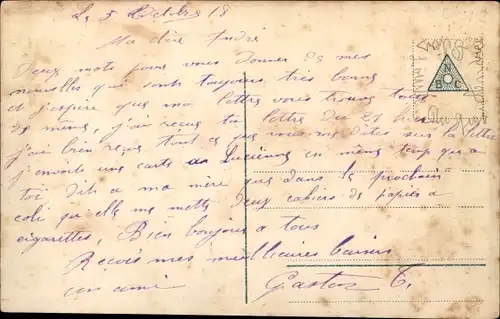 Le 5 Octobre 18
Ma chère André
Deux mots pour vous donner de mes
nouvelles qui sont toujours très bonnes
et j'espère que ma lettre vous trouve tous
de même, j'ai reçu ta lettre du 21 hier
j'ai bien reçu tout ce que vous me dites sur la lettre
j'envoie une carte a Lucienne en même temp que a
toi dit a ma mère que dans le prochain
coli qu'elle me mette deux cahiers de papier a
cigarettes, Bien bonjours a tous
Reçois mes meilleures baisers
ton ami Gaston C.
N
B C